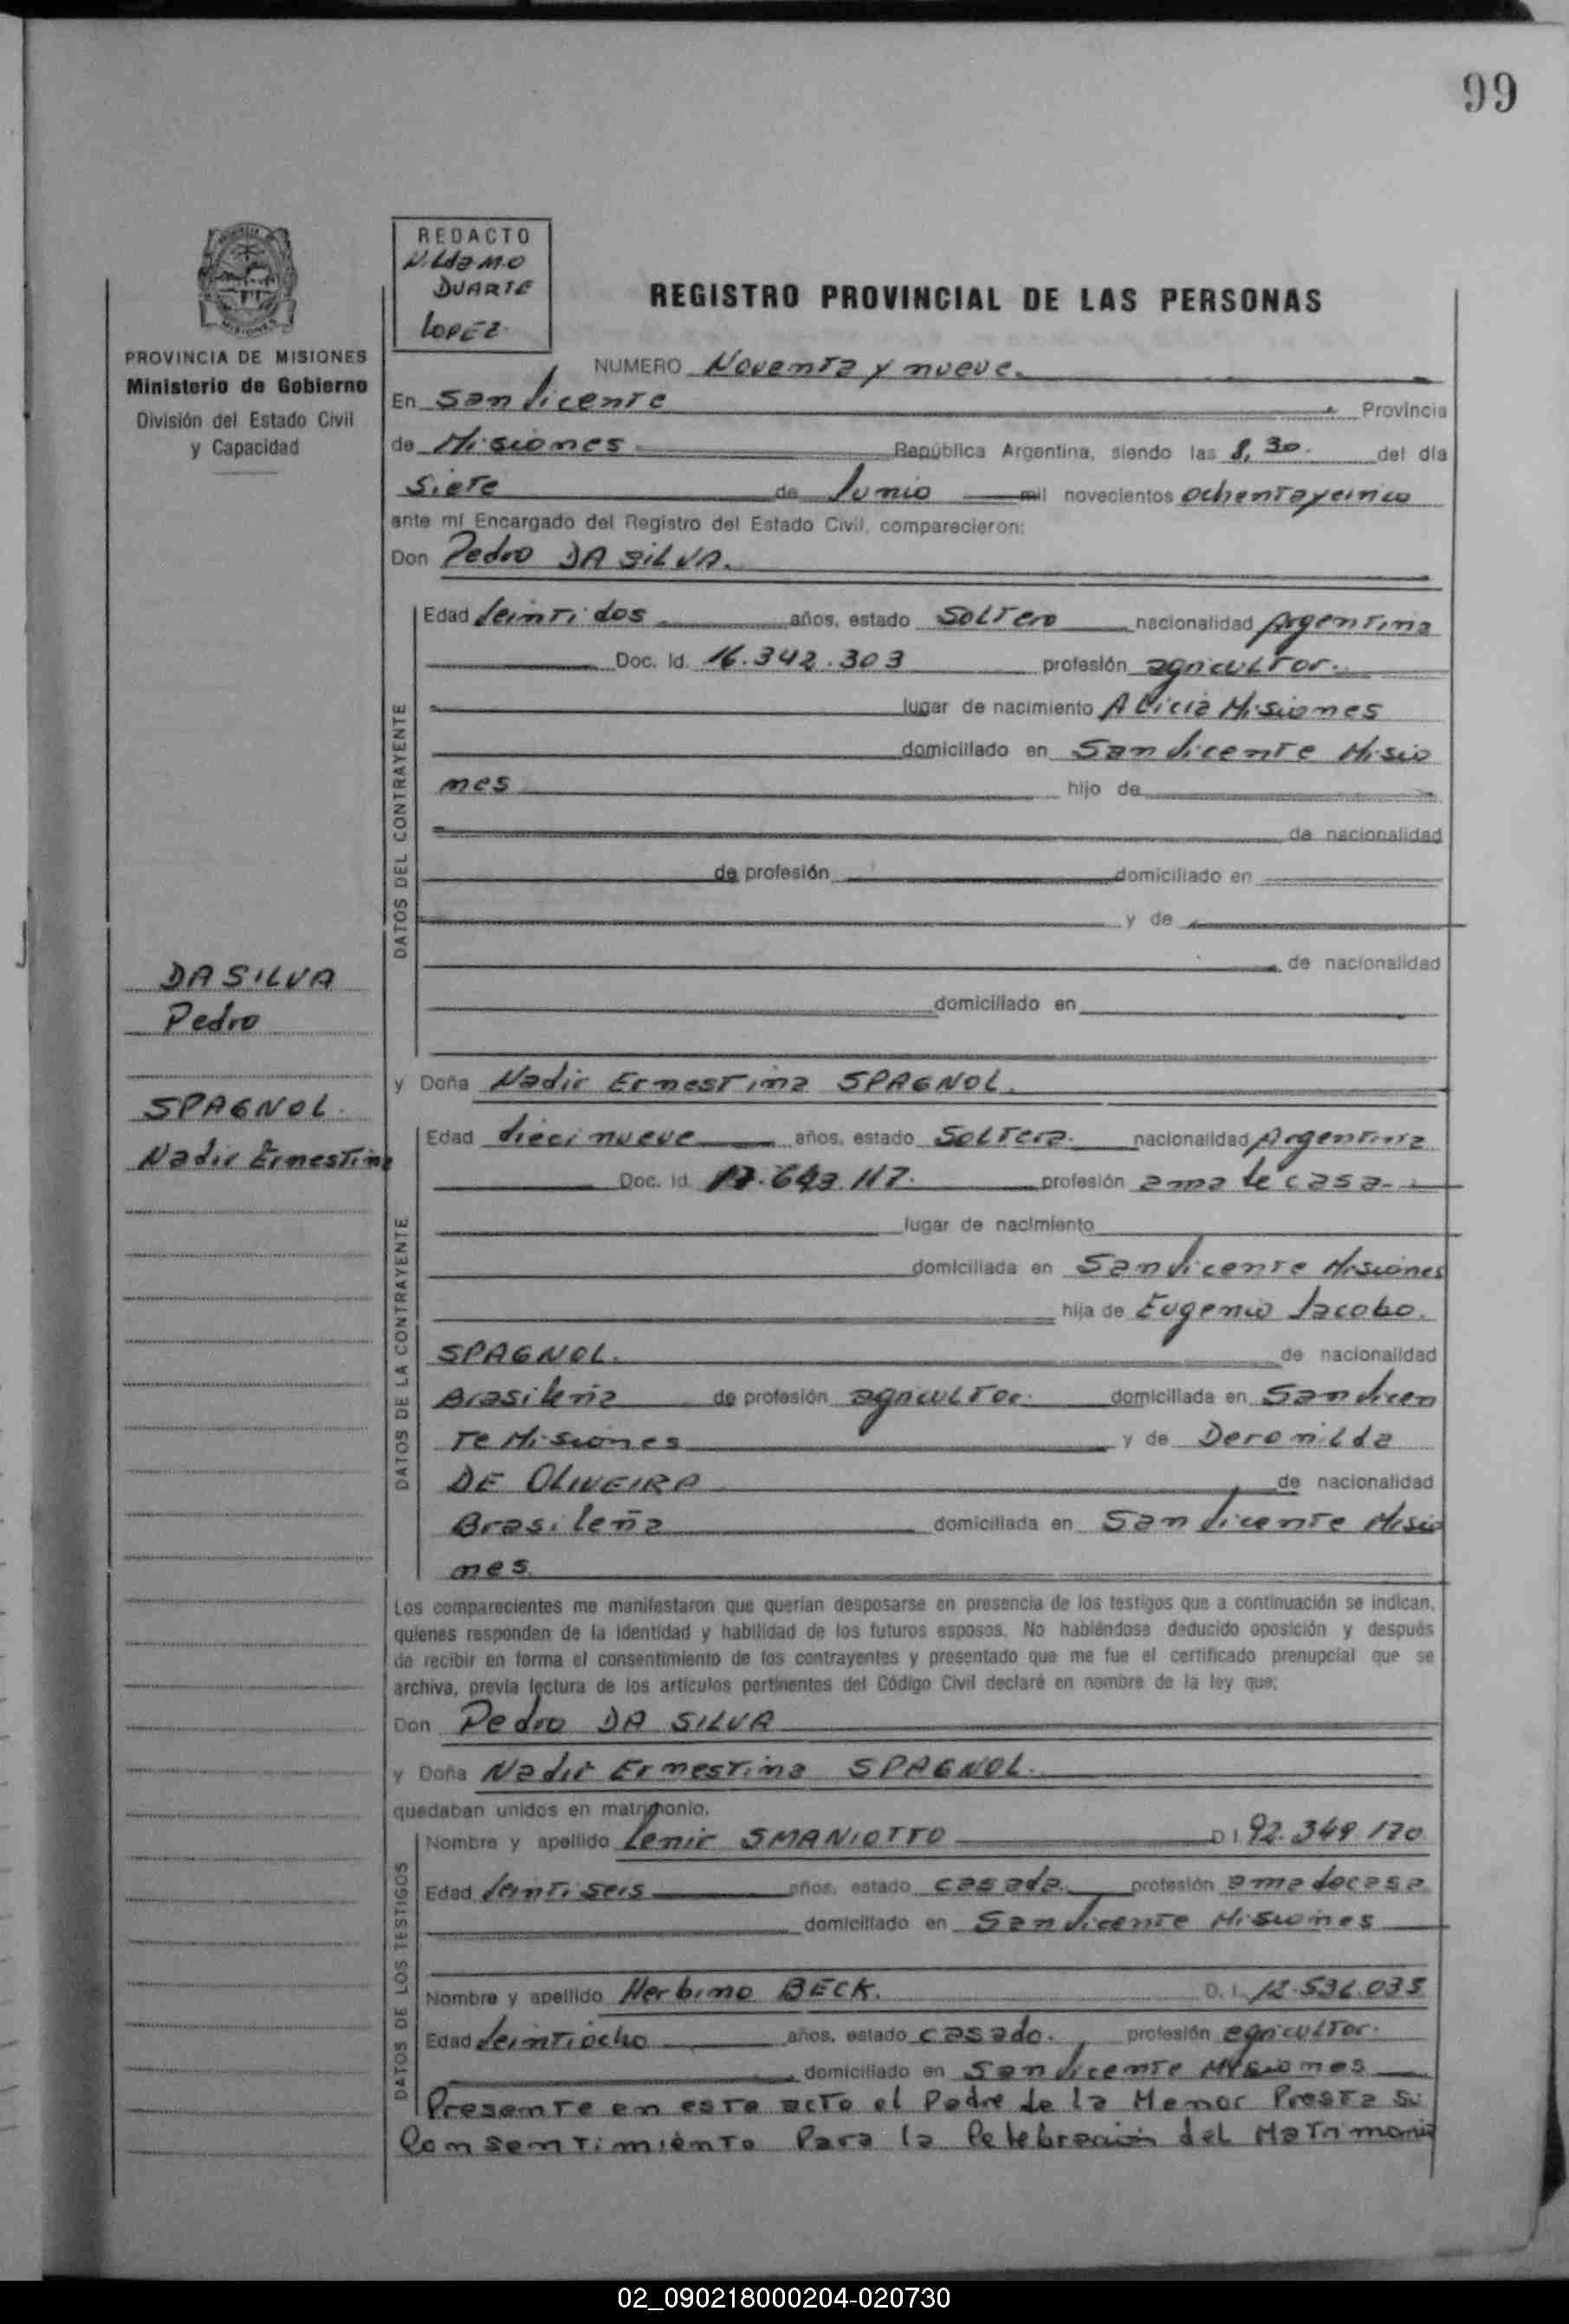 99
REDACTO
Nildo M.O
DUARTE
LOPEZ
MISIONES
PROVINCIA DE MISIONES
Ministerio de Gobierno
División del Estado Civil
y Capacidad
REGISTRO PROVINCIAL DE LAS PERSONAS
NUMERO Noventa y nueve.
En San Vicente Provincia
de Misiones República Argentina, siendo las 8,30. del día
siete de Junio mil novecientos ochentaycinco
ante mí Encargado del Registro del Estado Civil, comparecieron:
Don Pedro DA SILVA.
DATOS DEL CONTRAYENTE
Edad Veinti dos años, estado Soltero nacionalidad Argentina
Doc. Id. 16.342.303 profesión agricultor.
lugar de nacimiento Alicia Misiones
domiciliado en San Vicente Misio
nes hijo de
de nacionalidad
de profesión domiciliado en
y de
de nacionalidad
domiciliado en
DA SILVA
Pedro
SPAGNOL.
Nadir Ernestina
y Doña Nadir Ernestina SPAGNOL.
DATOS DE LA CONTRAYENTE
Edad dieci nueve años, estado Soltera. nacionalidad Argentina
Doc. Id. 117. profesión ama de casa.
lugar de nacimiento
domiciliada en San Vicente Misiones
hija de Eugenio Jacobo.
SPAGNOL. de nacionalidad
Brasileña de profesión agricultor. domiciliada en San Vicen
te Misiones y de Deronilda
DE OLIVEIRA de nacionalidad
Brasileña domiciliada en San Vicente Misio
nes.
Los comparecientes me manifestaron que querían desposarse en presencia de los testigos que a continuación se indican,
quienes responden de la identidad y habilidad de los futuros esposos. No habiéndose deducido oposición y después
de recibir en forma el consentimiento de los contrayentes y presentado que me fue el certificado prenupcial que se
archiva, previa lectura de los artículos pertinentes del Código Civil declaré en nombre de la ley que:
Don Pedro DA SILVA
y Doña Nadir Ernestina SPAGNOL.
quedaban unidos en matrimonio.
DATOS DE LOS TESTIGOS
Nombre y apellido Lenir SMANIOTTO D I. 92.349.170
Edad Veinti seis años, estado casada. profesión ama decasa
domiciliado en San Vicente Misiones
Nombre y apellido Herbino BECK. D. I. 12.536.035
Edad Veintiocho años, estado casado. profesión agricultor.
domiciliado en San Vicente Misiones
Presente en este acto el Padre de la Menor Presta su
Consentimiento Para la Celebración del Matrimonio
02_090218000204-020730